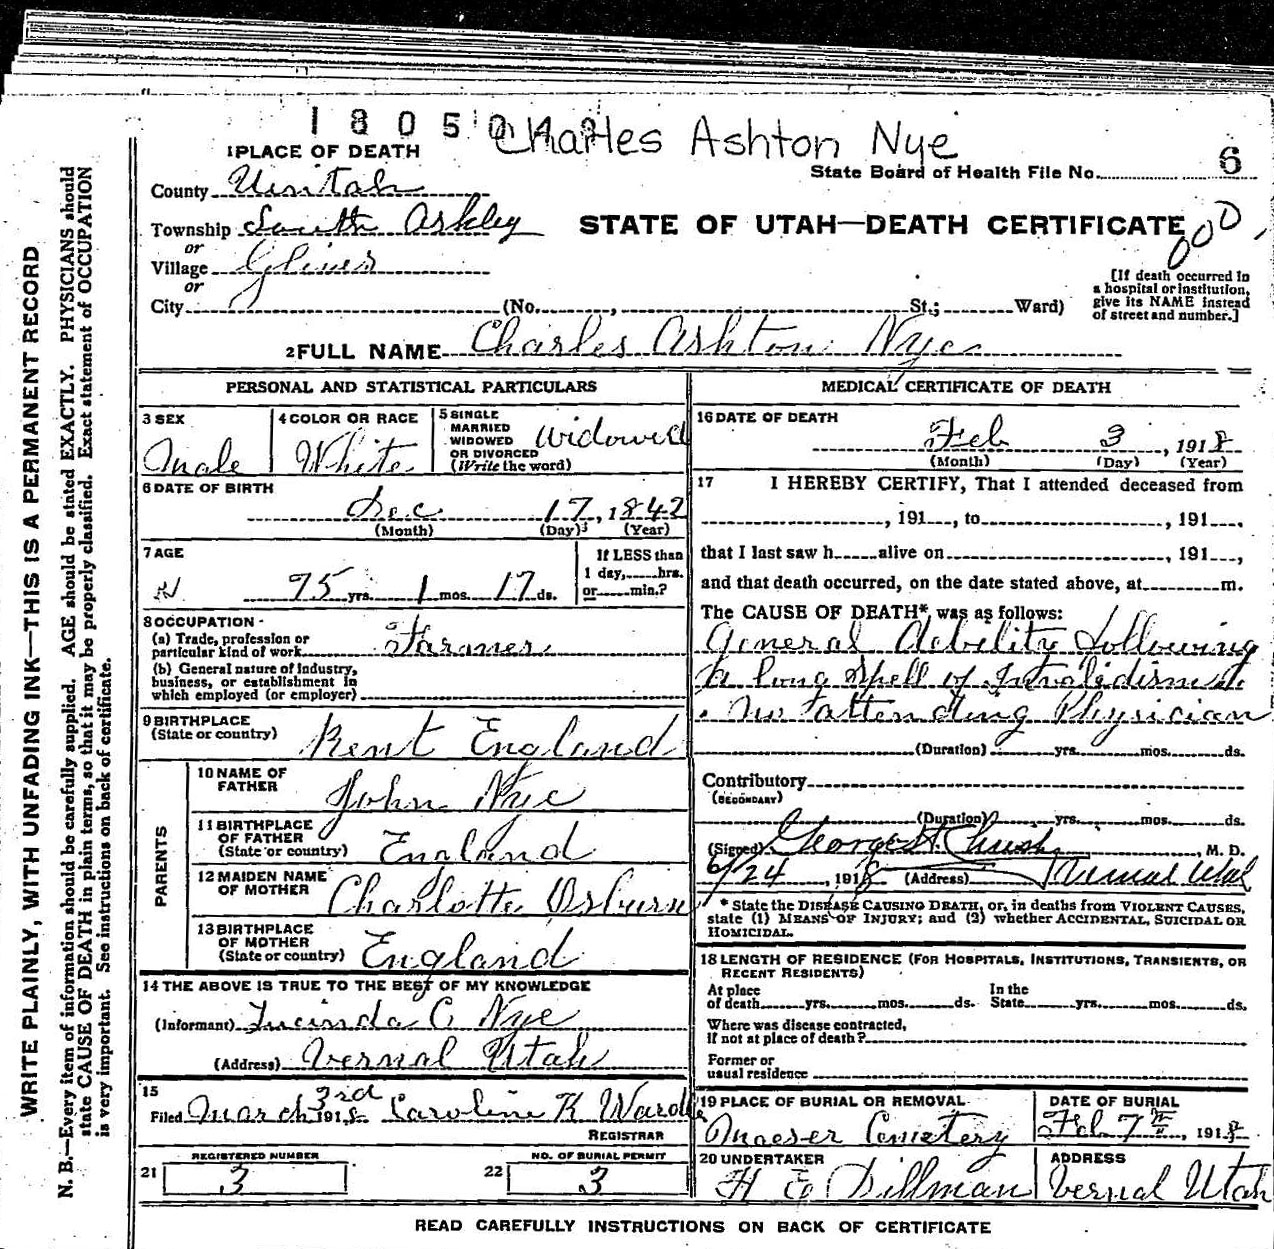 1 8 0 5 0
Charles Ashton Nye
1 PLACE OF DEATH
State Board of Health File No. 6
County Uintah
Township South Ashley
STATE OF UTAH—DEATH CERTIFICATE
or
Village Glines
or
City (No. , St.; Ward)
[If death occurred in
a hospital or institution,
give its NAME instead
of street and number.]
2 FULL NAME Charles Ashton Nye
PERSONAL AND STATISTICAL PARTICULARS
3 SEX
Male
4 COLOR OR RACE
White
5 SINGLE
MARRIED
WIDOWED
OR DIVORCED
(Write the word)
Widowed
6 DATE OF BIRTH
Dec 17, 1842
(Month) (Day) (Year)
7 AGE
75 yrs. 1 mos. 17 ds.
If LESS than
1 day, hrs.
or min.?
8 OCCUPATION
(a) Trade, profession or
particular kind of work Farmer
(b) General nature of industry,
business, or establishment in
which employed (or employer)
9 BIRTHPLACE
(State or country) Kent England
PARENTS
10 NAME OF
FATHER John Nye
11 BIRTHPLACE
OF FATHER
(State or country) England
12 MAIDEN NAME
OF MOTHER Charlotte Osburn
13 BIRTHPLACE
OF MOTHER
(State or country) England
14 THE ABOVE IS TRUE TO THE BEST OF MY KNOWLEDGE
(Informant) Lucinda C Nye
(Address) Vernal Utah
15
Filed March 3rd 1918 Caroline K Wardle
REGISTRAR
REGISTERED NUMBER
21 3
NO. OF BURIAL PERMIT
22 3
MEDICAL CERTIFICATE OF DEATH
16 DATE OF DEATH
Feb 3, 1918
(Month) (Day) (Year)
17 I HEREBY CERTIFY, That I attended deceased from
, 191 , to , 191 ,
that I last saw h alive on , 191 ,
and that death occurred, on the date stated above, at m.
The CAUSE OF DEATH* was as follows:
General debility following
a long spell of Invalidism
. No attending Physician
(Duration) yrs. mos. ds.
Contributory
(SECONDARY)
(Duration) yrs. mos. ds.
(Signed) George H. , M. D.
6/24, 1918 (Address) Vernal Utah
* State the DISEASE CAUSING DEATH, or, in deaths from VIOLENT CAUSES,
state (1) MEANS OF INJURY; and (2) whether ACCIDENTAL, SUICIDAL OR
HOMICIDAL.
18 LENGTH OF RESIDENCE (FOR HOSPITALS, INSTITUTIONS, TRANSIENTS, OR
RECENT RESIDENTS)
At place
of death yrs. mos. ds.
In the
State yrs. mos. ds.
Where was disease contracted,
if not at place of death?
Former or
usual residence
19 PLACE OF BURIAL OR REMOVAL
Maeser Cemetery
DATE OF BURIAL
Feb 7th, 1918
20 UNDERTAKER
H E Dillman
ADDRESS
Vernal Utah
READ CAREFULLY INSTRUCTIONS ON BACK OF CERTIFICATE
WRITE PLAINLY, WITH UNFADING INK—THIS IS A PERMANENT RECORD
N. B.—Every item of information should be carefully supplied. AGE should be stated EXACTLY. PHYSICIANS should
state CAUSE OF DEATH in plain terms, so that it may be properly classified. Exact statement of OCCUPATION
is very important. See instructions on back of certificate.